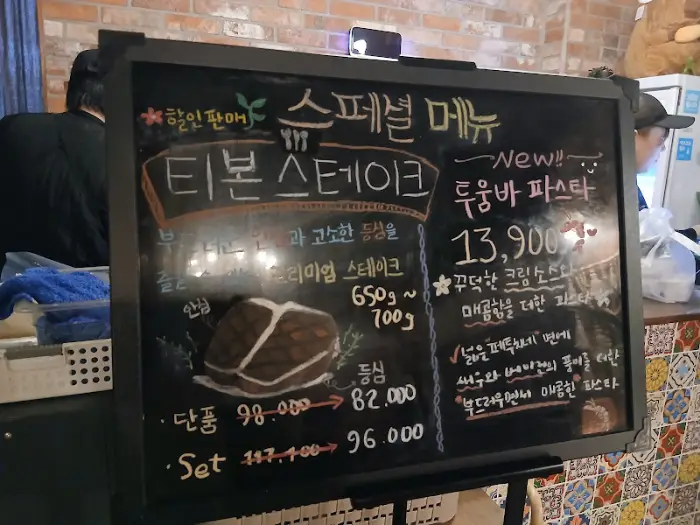 할인판매
스페셜 메뉴
티본 스테이크
부드러운 안심과 고소한 등심을
프리미엄 스테이크
650g ~
700g
안심
등심
· 단품 98.000 → 82.000
· Set 117.100 → 96.000
New!!
투움바 파스타
13,900
꾸덕한 크림소스와
매콤함을 더한 파스타
넓은 "페투치네" 면에
새우와 베이컨의 풍미를 더한
"부드러우면서 매콤한" 파스타